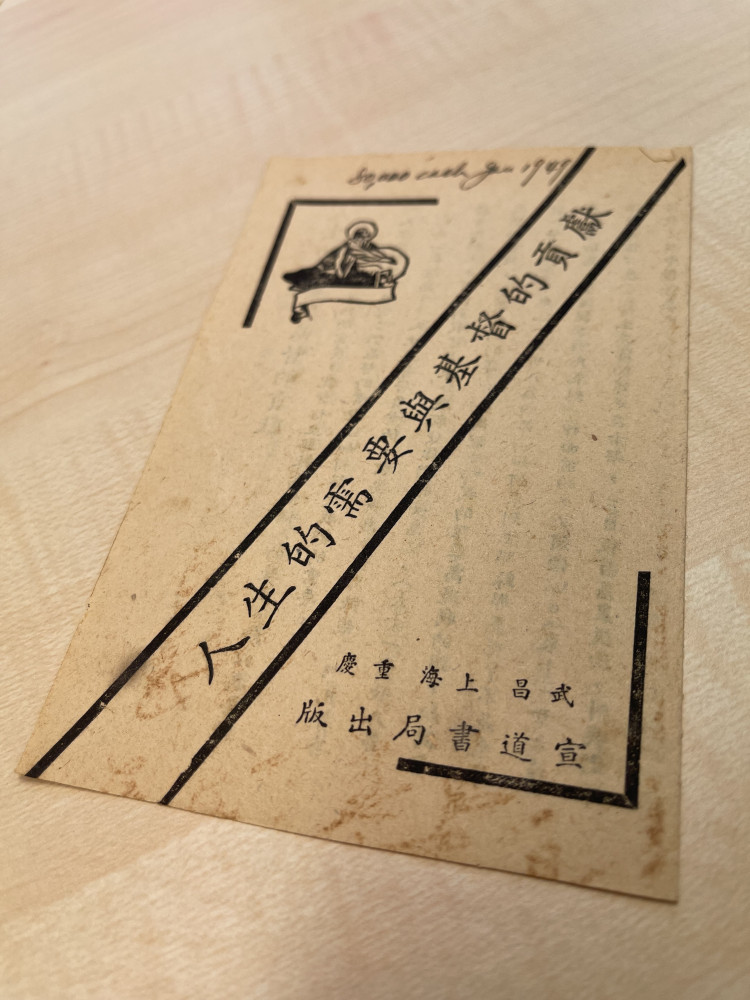 Jan 1949
人生的需要與基督的貢獻
武昌 上海 重慶
宣道書局出版